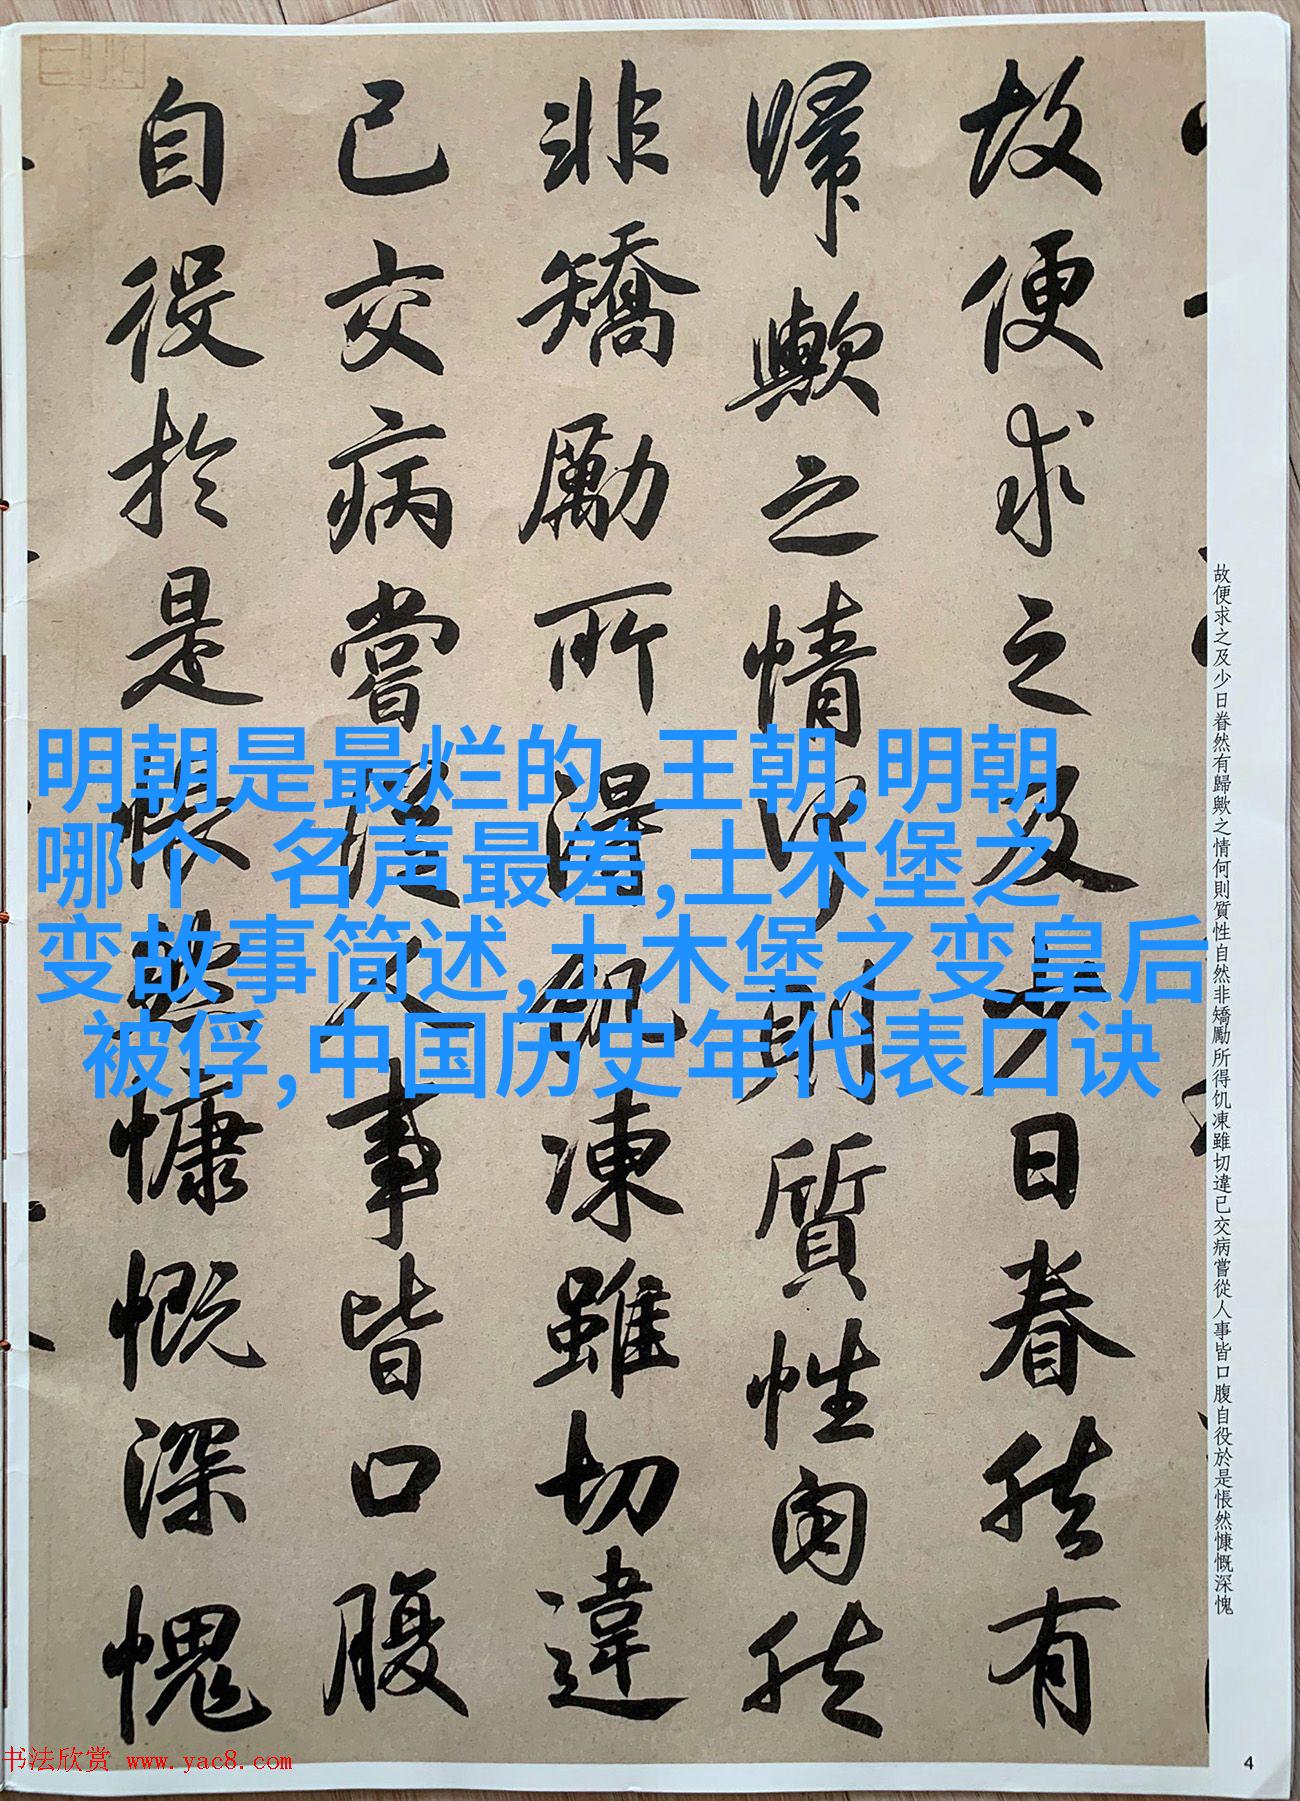 故便求之及少日眷然有歸歟之情何則質性自然非矯勵所得饥凍雖切違已交病嘗從人事皆口腹自役於是悵然慷慨深愧
故便求之及少日眷然有
歸歟之情何則質性自然
非矯勵所得飢凍雖切違
已交病嘗從人事皆口腹
自役於是悵然慷慨深愧
明朝是最烂的 王朝,明朝
哪个 名声最差,土木堡之
变故事简述,土木堡之变皇后
被俘,中国历史年代表口诀
书法欣赏 www.yac8.com
4